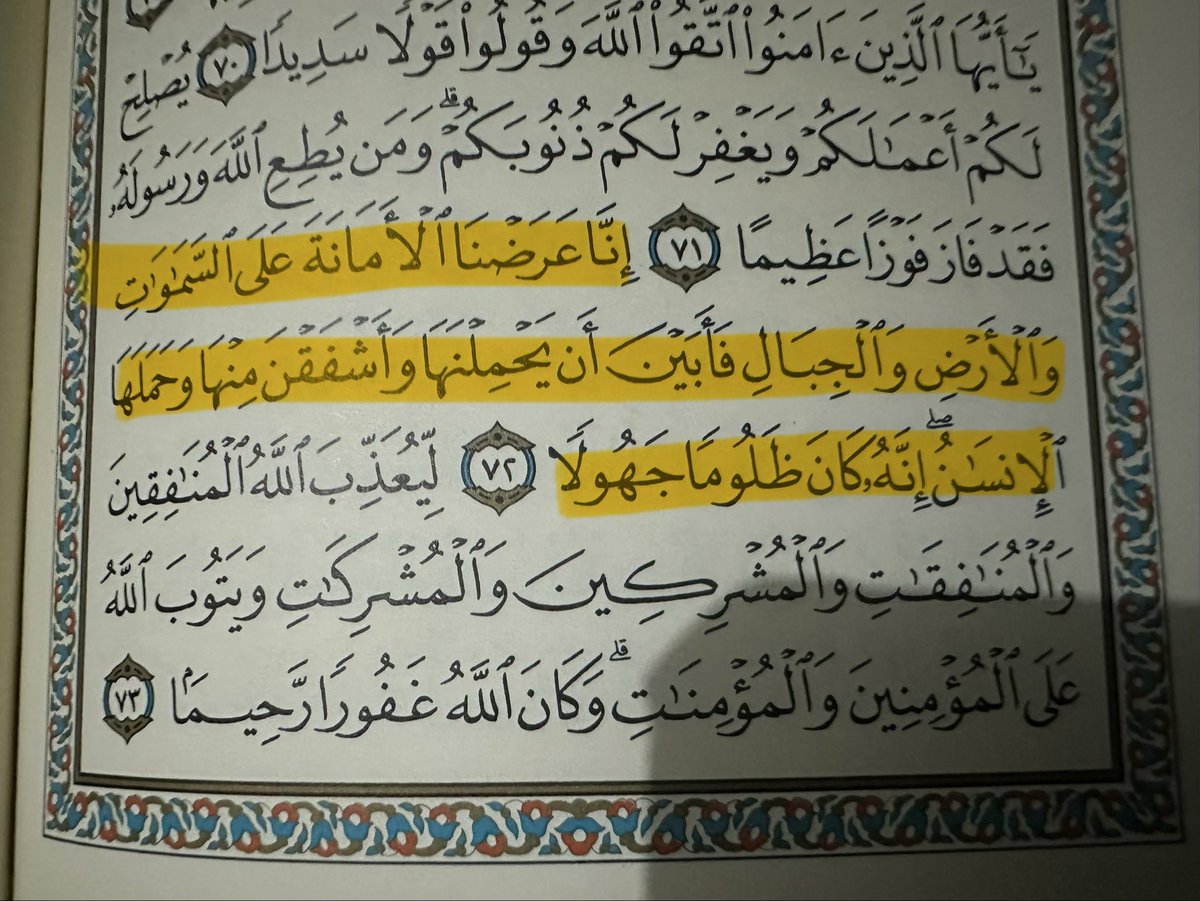 يَٰٓأَيُّهَا ٱلَّذِينَ ءَامَنُوا۟ ٱتَّقُوا۟ ٱللَّهَ وَقُولُوا۟ قَوْلًا سَدِيدًا ٧٠ يُصْلِحْ
لَكُمْ أَعْمَٰلَكُمْ وَيَغْفِرْ لَكُمْ ذُنُوبَكُمْ ۗ وَمَن يُطِعِ ٱللَّهَ وَرَسُولَهُۥ
فَقَدْ فَازَ فَوْزًا عَظِيمًا ٧١ إِنَّا عَرَضْنَا ٱلْأَمَانَةَ عَلَى ٱلسَّمَٰوَٰتِ
وَٱلْأَرْضِ وَٱلْجِبَالِ فَأَبَيْنَ أَن يَحْمِلْنَهَا وَأَشْفَقْنَ مِنْهَا وَحَمَلَهَا
ٱلْإِنسَٰنُ ۖ إِنَّهُۥ كَانَ ظَلُومًا جَهُولًا ٧٢ لِّيُعَذِّبَ ٱللَّهُ ٱلْمُنَٰفِقِينَ
وَٱلْمُنَٰفِقَٰتِ وَٱلْمُشْرِكِينَ وَٱلْمُشْرِكَٰتِ وَيَتُوبَ ٱللَّهُ
عَلَى ٱلْمُؤْمِنِينَ وَٱلْمُؤْمِنَٰتِ ۗ وَكَانَ ٱللَّهُ غَفُورًا رَّحِيمًۢا ٧٣